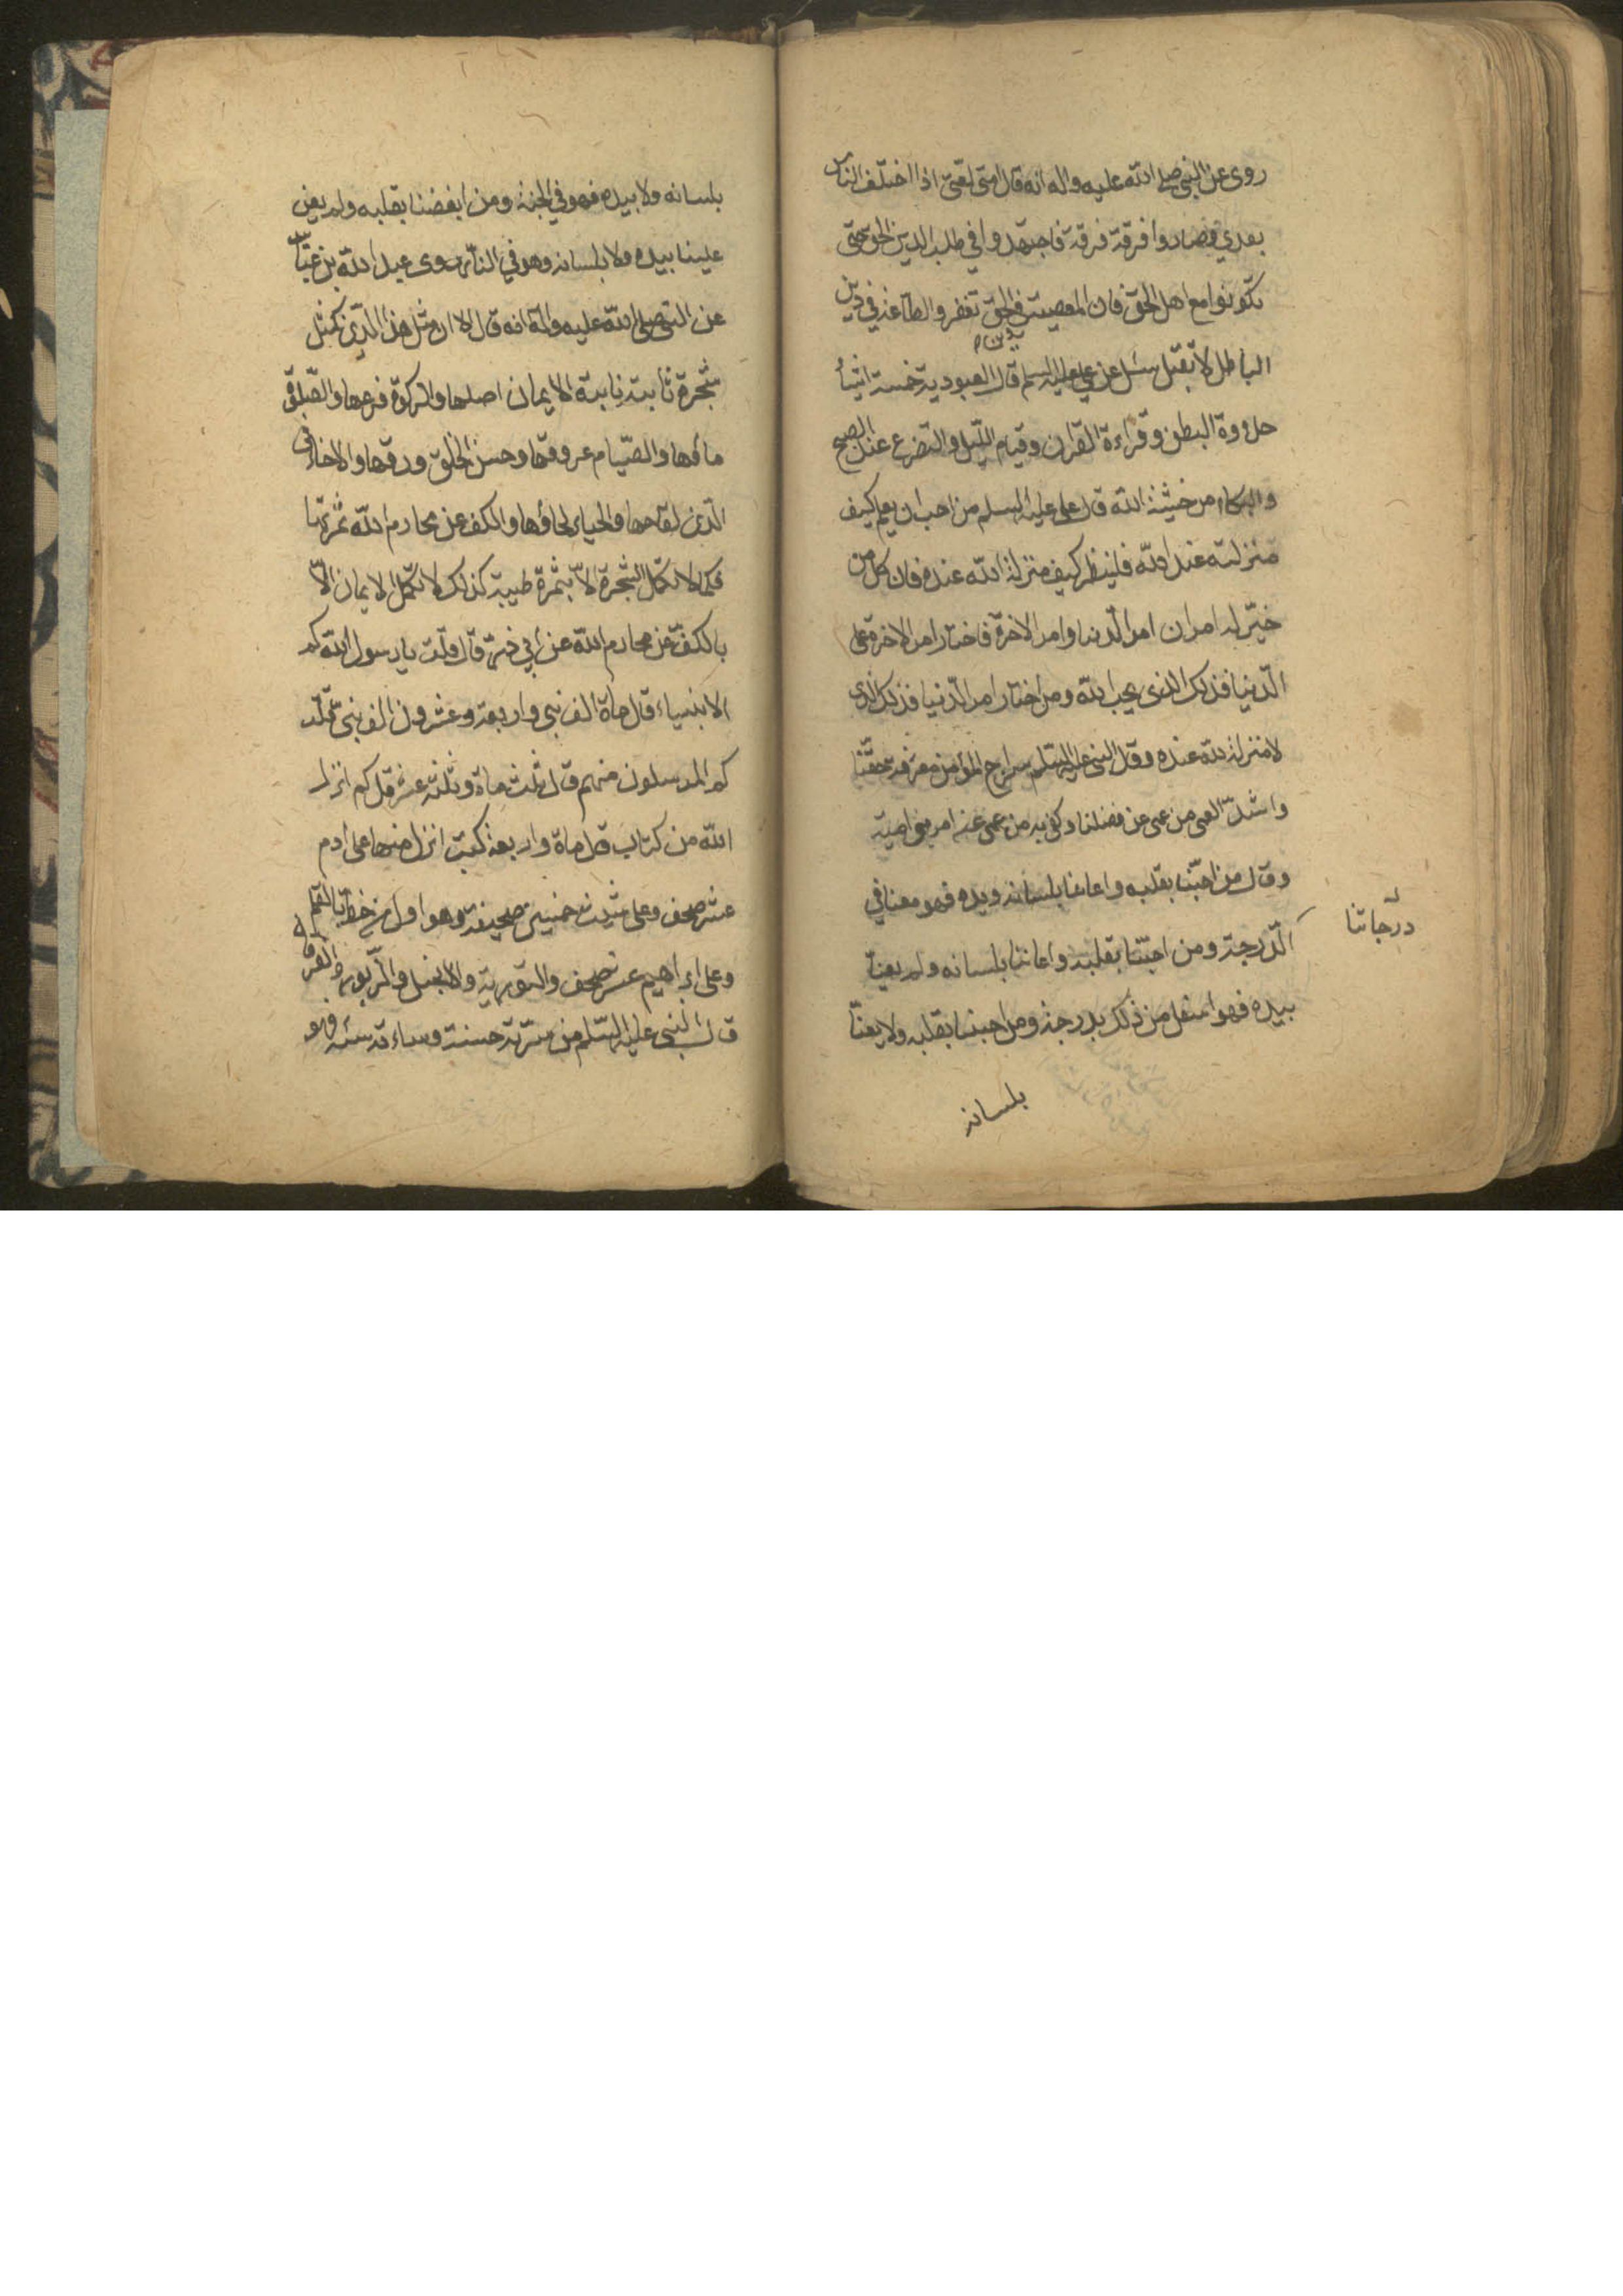 روى عن النبي صلى الله عليه واله انه قال امتى امتى اذا اختلف الناس
بعدي فصاروا فرقة فرقة فاجتهدوا في طلب الدين الحق حتى
تكونوا مع اهل الحق فان المعصية في دين الحق تغفر والطاعة في دين
الباطل لا تقبل سئل عن علي عليه السلم قال العبودية خمسة اشياء
خلاوة البطن وقراءة القران وقيام الليل والتضرع عند الصبح
والبكاء من خشية الله قال علي عليه السلم من احب ان يعلم كيف
منزلته عند الله فلينظر كيف منزلة الله عنده فان كل من
خير له امران امر الدنيا وامر الاخرة فاختار امر الاخرة على
الدنيا فذلك الذى يحب الله ومن اختار امر الدنيا فذلك الذى
لا منزلة لله عنده وقال النبي عليه السلم سراج المؤمن معرفة حقنا
واشد العمى من عمى عن فضلنا وكفى به من عمى عنه امر
وقال من احبنا بقلبه واعاننا بلسانه ويده فهو معنا في
درجاتنا
الدرجة ومن احبنا بقلبه واعاننا بلسانه ولم يعنا
بيده فهو اسفل من ذلك بدرجة ومن احبنا بقلبه ولا يعنا
بلسانه
بلسانه ولا بيده فهو في الجنة ومن ابغضنا بقلبه ولم يعن
علينا بيده ولا بلسانه وهو في النار روى عبد الله بن عباس
عن النبي صلى الله عليه واله انه قال الا ان مثل هذا الدين كمثل
شجرة نابتة ثابتة الايمان اصلها والزكوة فرعها والصلوة
ماؤها والصيام عروقها وحسن الخلق ورقها والاخاء في
الدين لقاحها والحياء لحاؤها والكف عن محارم الله ثمرتها
فكما لا تكمل الشجرة الا بثمرة طيبة كذلك لا تكمل الايمان الا
بالكف عن محارم الله عن ابي ذر قال قلت يا رسول الله كم
الانبياء قال ماة الف نبي واربعة وعشرون الف نبي قلت
كم المرسلون منهم قال ثلث ماة وثلثة عشر قال كم انزل
الله من كتاب قال ماة واربعة كتب انزل منها على ادم
عشر صحف وعلى شيث خمسين صحيفة وهو اول من خط بالقلم
وعلى ابراهيم عشر صحف والتورية والانجيل والزبور والفرقان
قال النبي عليه السلم من سرته حسنة وساءته سيئة فهو